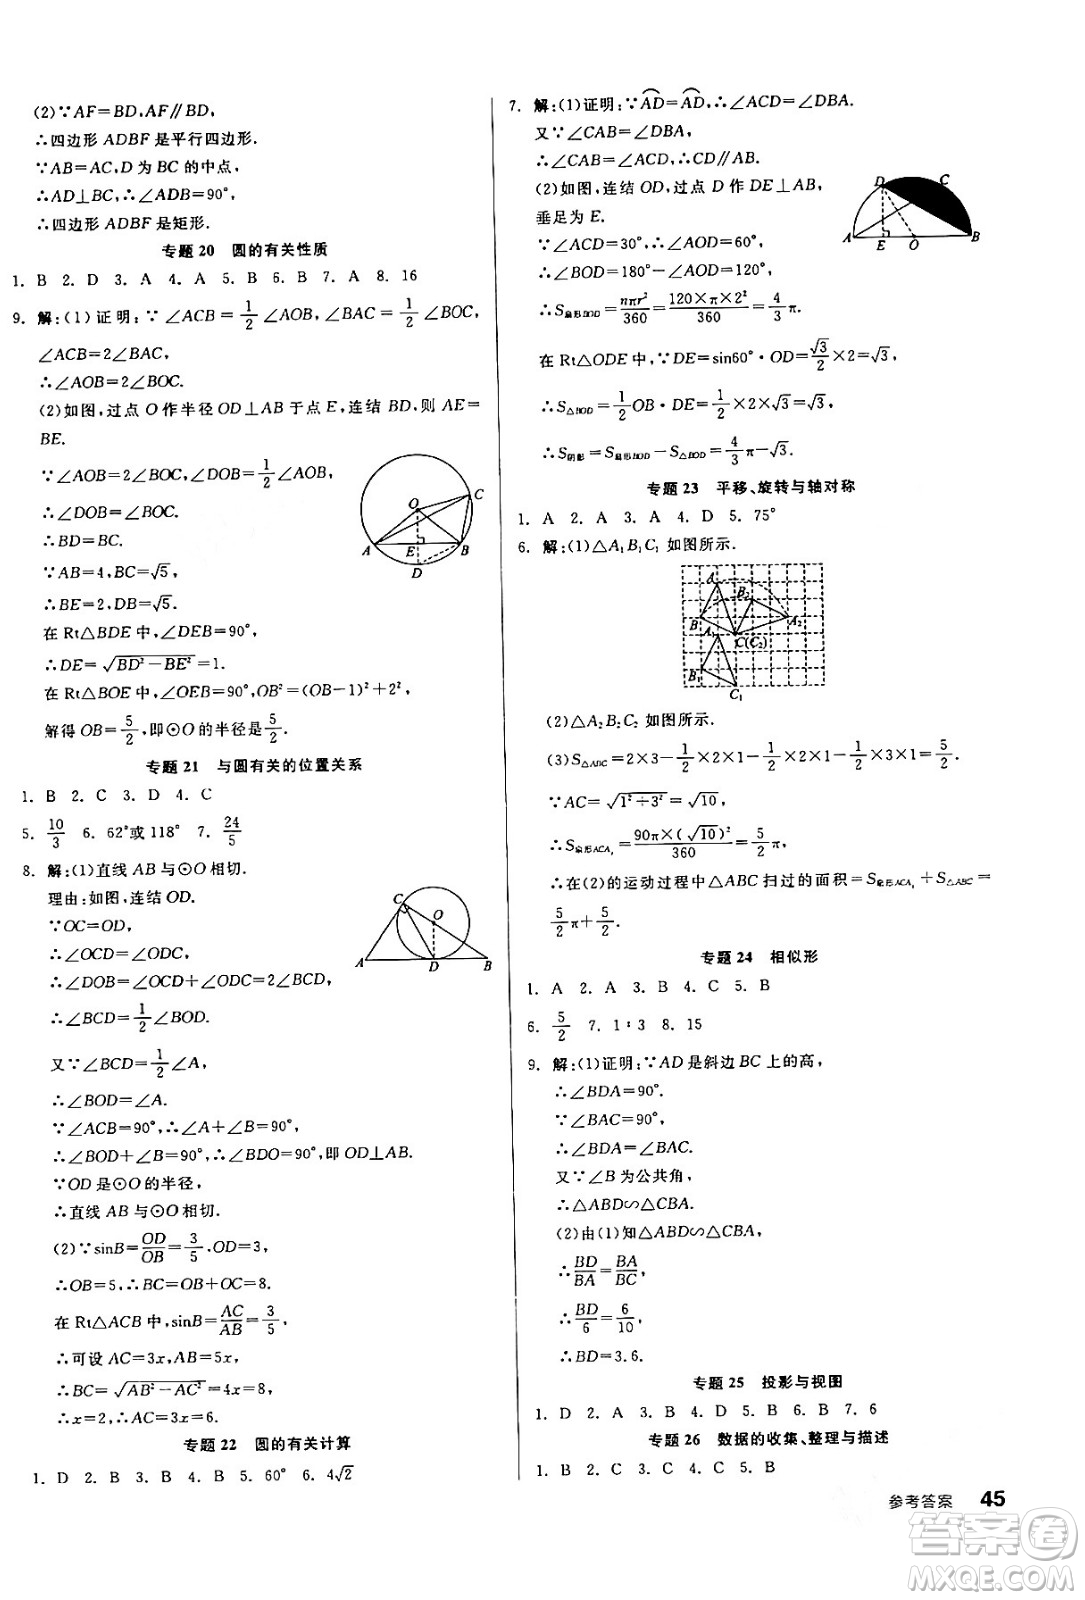 (2)∵AF=BD,AF∥BD,
∴四边形 ADBF 是平行四边形.
∵AB=AC,D 为 BC 的中点,
∴AD⊥BC,∴∠ADB=90°,
∴四边形 ADBF 是矩形.
专题 20 圆的有关性质
1. B 2. D 3. A 4. A 5. B 6. B 7. A 8. 16
9. 解:(1)证明:∵∠ACB=1/2∠AOB,∠BAC=1/2∠BOC,
∠ACB=2∠BAC,
∴∠AOB=2∠BOC.
(2)如图,过点 O 作半径 OD⊥AB 于点 E,连结 BD,则 AE=
BE.
∵∠AOB=2∠BOC,∠DOB=1/2∠AOB,
∴∠DOB=∠BOC,
∴BD=BC.
∵AB=4,BC=√5,
∴BE=2,DB=√5.
在 Rt△BDE 中,∠DEB=90°,
∴DE=√(BD²-BE²)=1.
在 Rt△BOE 中,∠OEB=90°,OB²=(OB-1)²+2²,
解得 OB=5/2,即⊙O 的半径是5/2.
O C A E B D
专题 21 与圆有关的位置关系
1. B 2. C 3. D 4. C
5. 10/3 6. 62°或 118° 7. 24/5
8. 解:(1)直线 AB 与⊙O 相切.
理由:如图,连结 OD.
∵OC=OD,
∴∠OCD=∠ODC,
∴∠DOB=∠OCD+∠ODC=2∠BCD,
∴∠BCD=1/2∠BOD.
又∵∠BCD=1/2∠A,
∴∠BOD=∠A.
∵∠ACB=90°,∴∠A+∠B=90°,
∴∠BOD+∠B=90°,∴∠BDO=90°,即 OD⊥AB.
∵OD 是⊙O 的半径,
∴直线 AB 与⊙O 相切.
(2)∵sinB=OD/OB=3/5,OD=3,
∴OB=5,∴BC=OB+OC=8.
在 Rt△ACB 中,sinB=AC/AB=3/5,
∴可设 AC=3x,AB=5x,
∴BC=√(AB²-AC²)=4x=8,
∴x=2,∴AC=3x=6.
C O A D B
专题 22 圆的有关计算
1. D 2. B 3. B 4. B 5. 60° 6. 4√2
7. 解:(1)证明:∵AD⌒=AD⌒,∴∠ACD=∠DBA.
又∵∠CAB=∠DBA,
∴∠CAB=∠ACD,∴CD∥AB.
(2)如图,连结 OD,过点 D 作 DE⊥AB,
垂足为 E.
∵∠ACD=30°,∴∠AOD=60°,
∴∠BOD=180°-∠AOD=120°,
∴S扇形BOD=nπr²/360=120×π×2²/360=4/3π.
在 Rt△ODE 中,∵DE=sin60°·OD=√3/2×2=√3,
∴S△BOD=1/2OB·DE=1/2×2×√3=√3,
∴S阴影=S扇形BOD-S△BOD=4/3π-√3.
D C A E O B
专题 23 平移、旋转与轴对称
1. A 2. A 3. A 4. D 5. 75°
6. 解:(1)△A₁B₁C₁ 如图所示.
A B₂ B A₂ A₁ C(C₂) B₁ C₁
(2)△A₂B₂C₂ 如图所示.
(3)S△ABC=2×3-1/2×2×1-1/2×2×1-1/2×1×3=5/2.
∵AC=√(1²+3²)=√10,
∴S扇形ACA₂=90π×(√10)²/360=5/2π,
∴在(2)的运动过程中△ABC 扫过的面积=S扇形ACA₂+S△ABC=
5/2π+5/2.
专题 24 相似形
1. A 2. A 3. B 4. C 5. B
6. 5/2 7. 1∶3 8. 15
9. 解:(1)证明:∵AD 是斜边 BC 上的高,
∴∠BDA=90°.
∵∠BAC=90°,
∴∠BDA=∠BAC.
又∵∠B 为公共角,
∴△ABD∽△CBA.
(2)由(1)知△ABD∽△CBA,
∴BD/BA=BA/BC,
∴BD/6=6/10,
∴BD=3.6.
专题 25 投影与视图
1. D 2. A 3. B 4. D 5. A 6. B 7. 6
专题 26 数据的收集、整理与描述
1. B 2. C 3. C 4. C 5. B
参考答案 45
答案卷
MXQE.COM